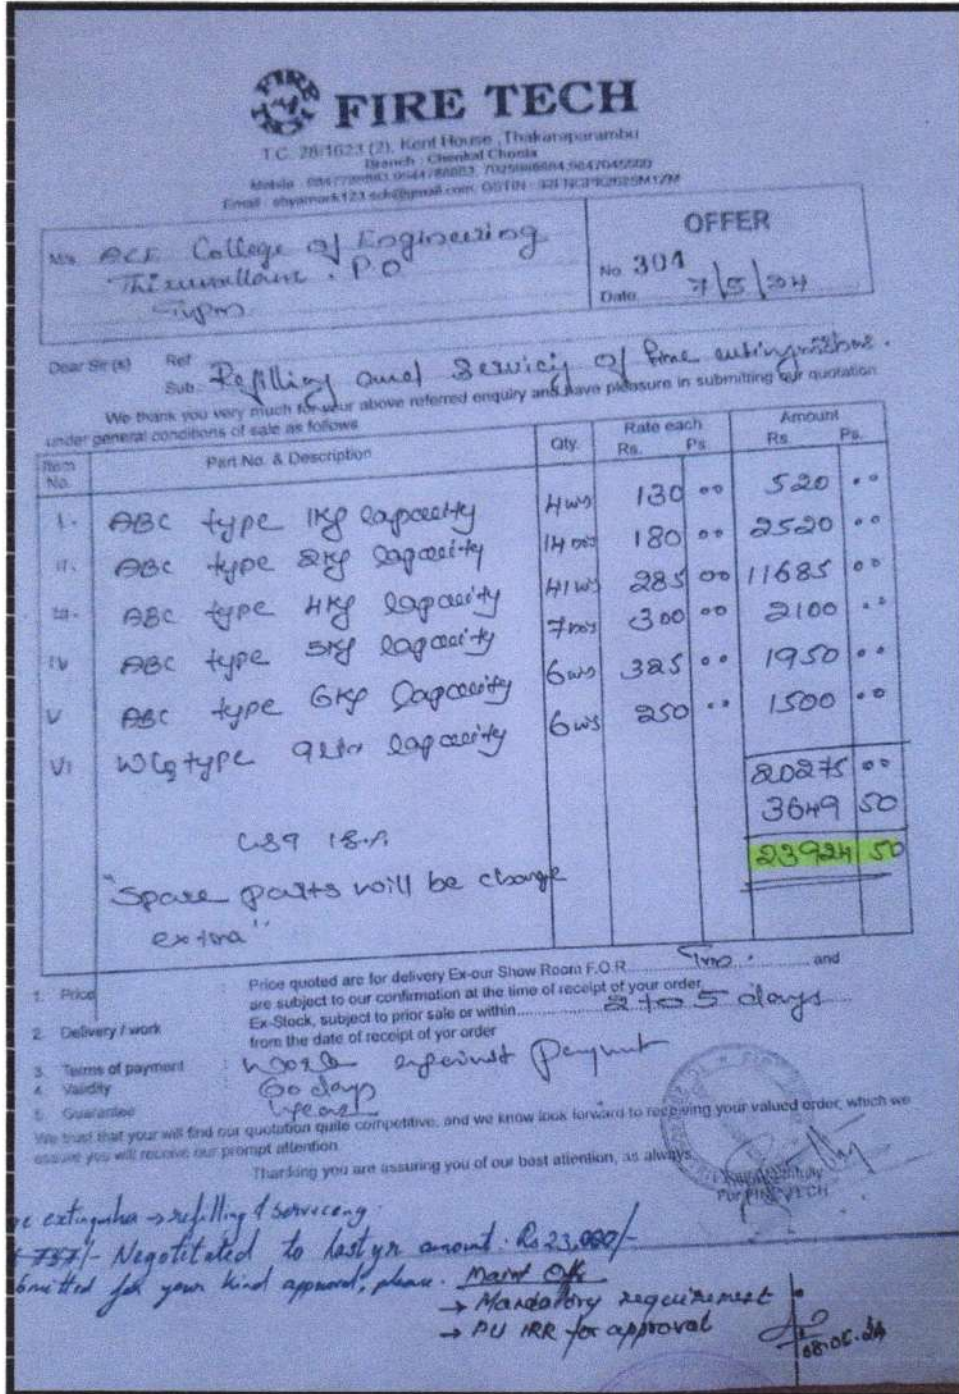 FIRE TECH
T.C. 28/1623 (2), Kent House, Thakaraparambu
Branch : Chenkal Choola
Mobile :
Email :
OFFER
M/s ACE College of Engineering
Thiruvallam . P.O
Tvpm
No. 301
Date 7/5/24
Dear Sir (s) Ref
Sub. Refilling and Servicig of fire
We thank you very much for your above referred enquiry and have pleasure in submitting our quotation
under general conditions of sale as follows
Item No. Part No. & Description Qty. Rate each Rs. Ps. Amount Rs. Ps.
I. ABC type 1Kg Capacity 4 130 00 520 00
II. ABC type 2Kg Capacity 14 180 00 2520 00
III. ABC type 4Kg Capacity 41 285 00 11685 00
IV ABC type 5Kg Capacity 7nos 300 00 2100 00
V ABC type 6Kg Capacity 6 325 00 1950 00
VI type 9Ltr Capacity 6 250 00 1500 00
20275 00
3649 50
23924 50
"Spare parts will be charge
extra"
1. Price : Price quoted are for delivery Ex-our Show Room F.O.R. and
are subject to our confirmation at the time of receipt of your order
2. Delivery / work : Ex-Stock, subject to prior sale or within 2 to 5 days
from the date of receipt of yor order
3. Terms of payment : against payment
4. Validity : 60 days
5. Guarantee : 1year
We trust that your will find our quotation quite competitive, and we know look forward to receiving your valued order, which we
assure you will receive our prompt attention.
Thanking you are assuring you of our best attention, as always.
For FIRE TECH
extinguisher → refilling & servicing.
Negotitated to last yr amount. Rs 23,000/-
for your kind approval, please. Maint Off
→ Mandatory requirement
→ PU IRR for approval
08.05.24